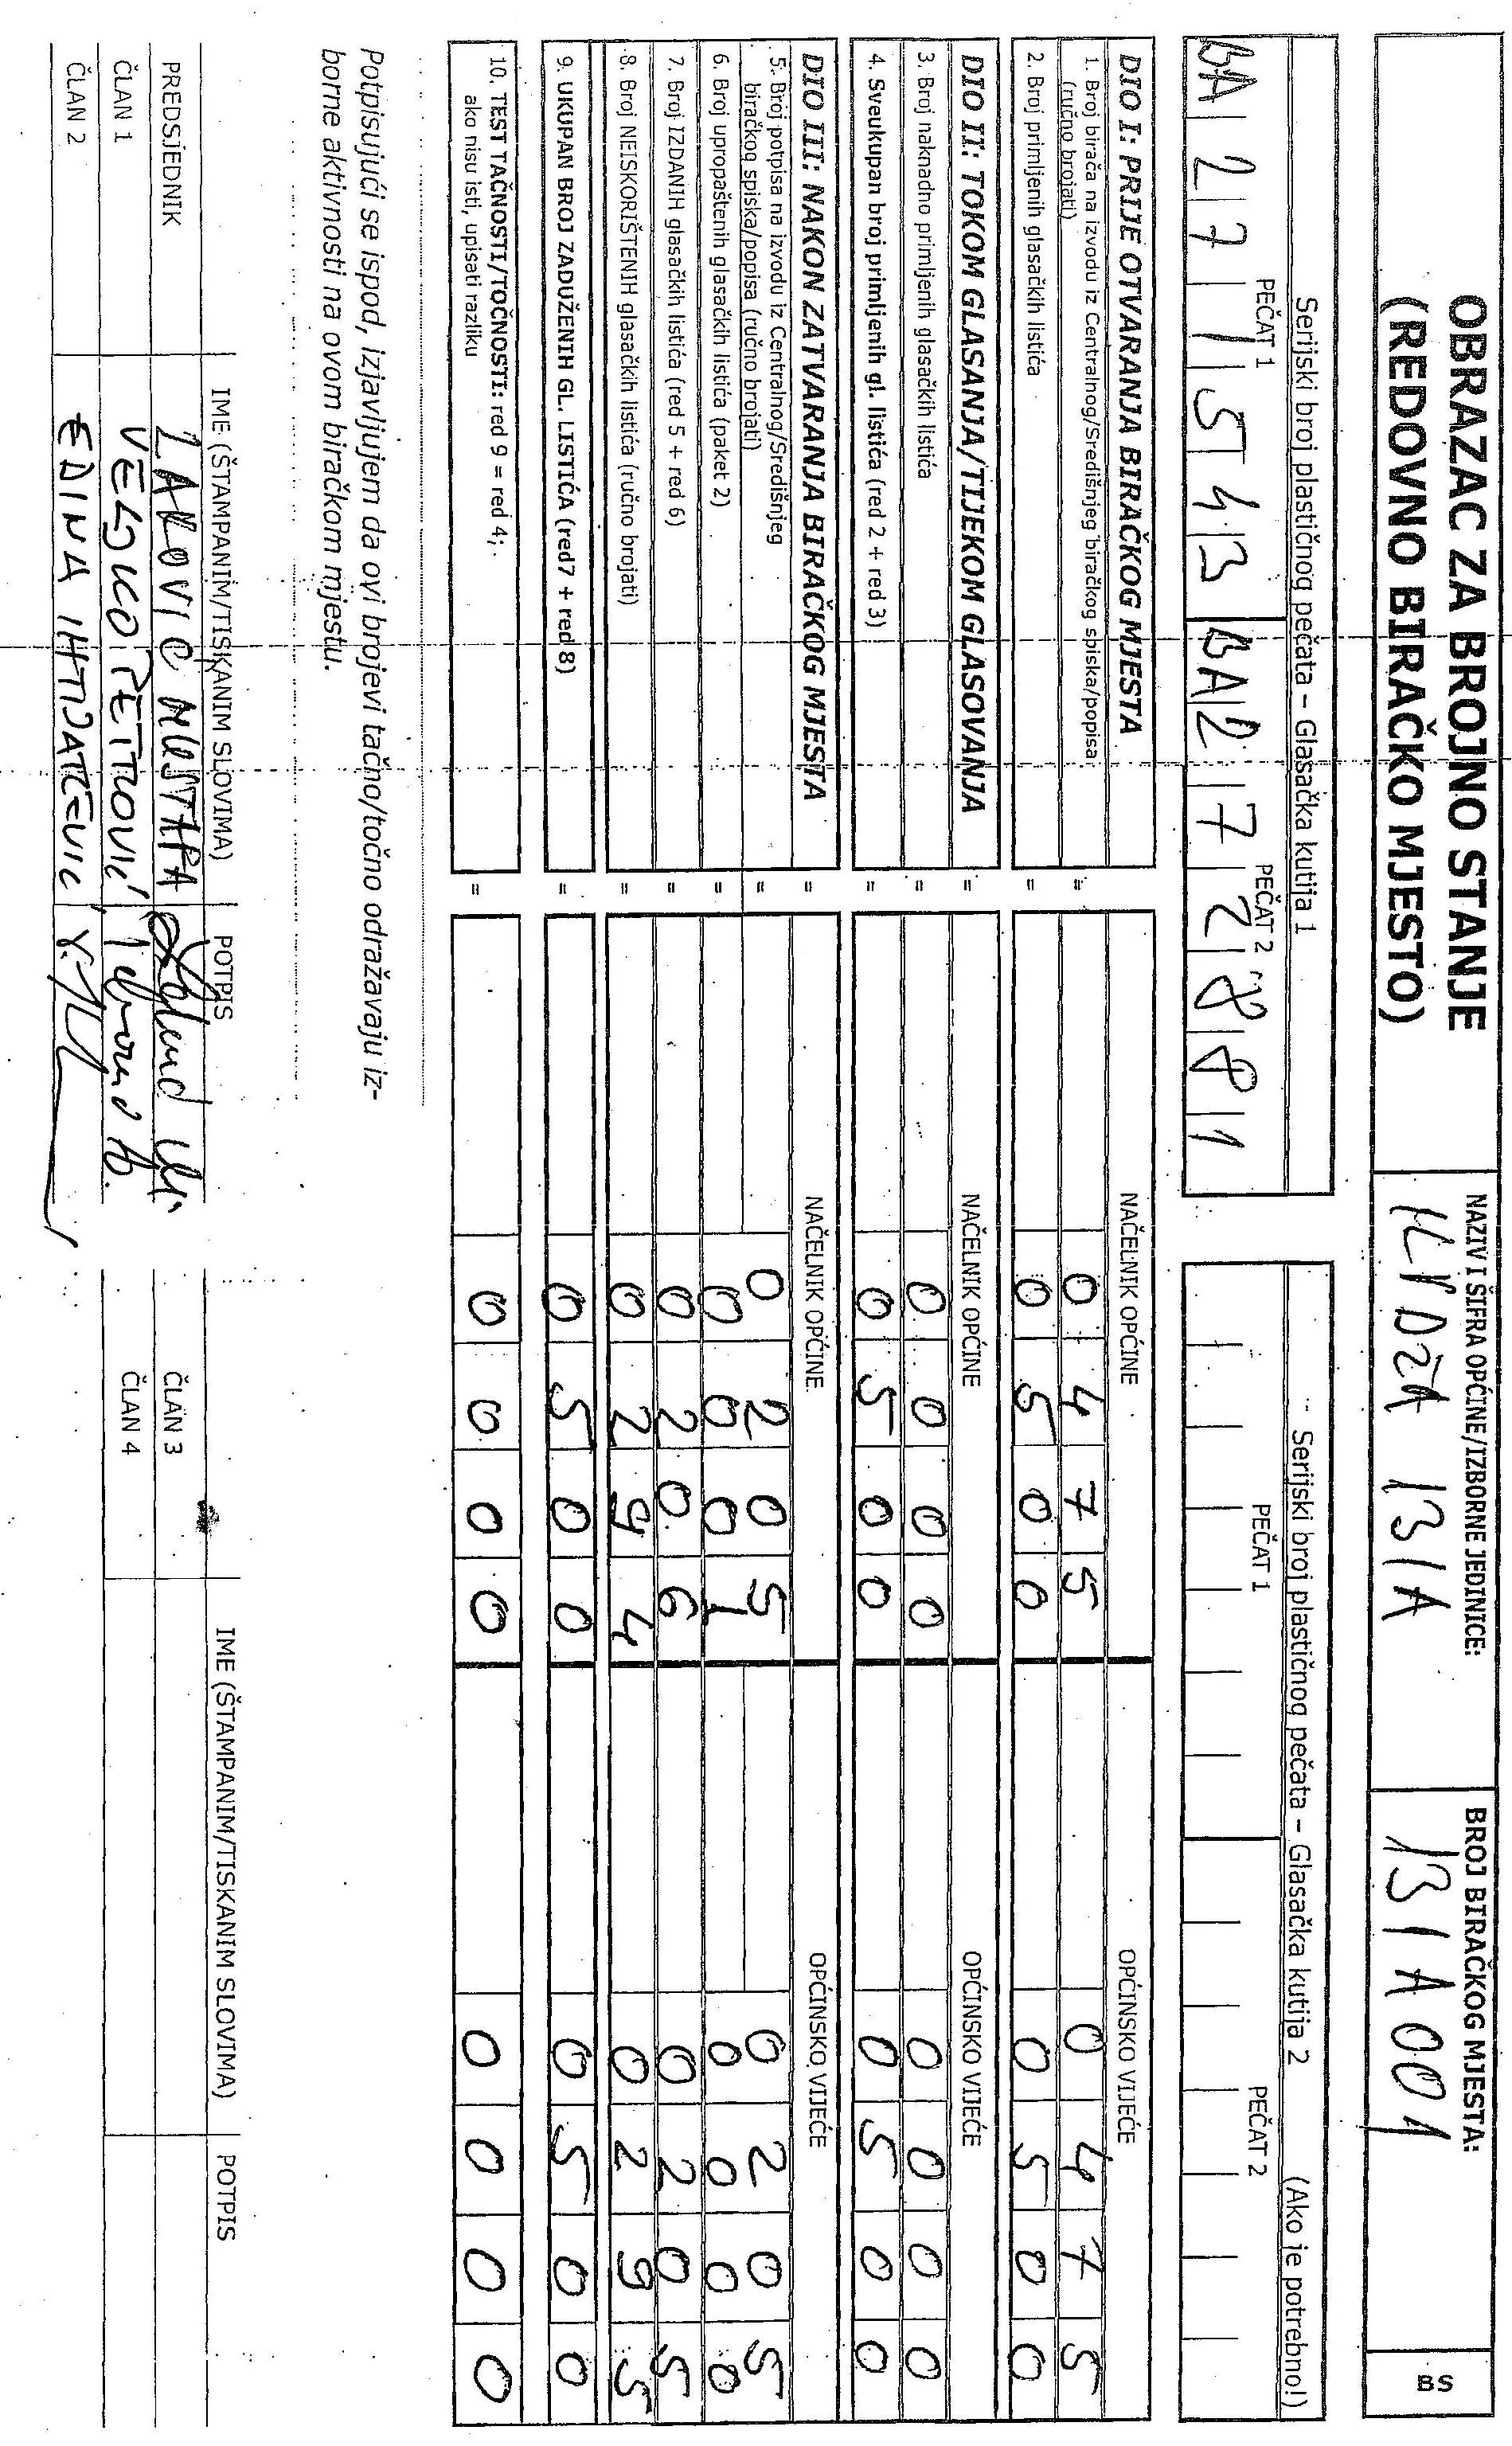 OBRAZAC ZA BROJNO STANJE
(REDOVNO BIRAČKO MJESTO)
NAZIV I ŠIFRA OPĆINE/IZBORNE JEDINICE:
ILIDŽA 131A
BROJ BIRAČKOG MJESTA:
131A001
BS
Serijski broj plastičnog pečata – Glasačka kutija 1
PEČAT 1 PEČAT 2
BA271543 BA272881
Serijski broj plastičnog pečata – Glasačka kutija 2 (Ako je potrebno!)
PEČAT 1 PEČAT 2
DIO I: PRIJE OTVARANJA BIRAČKOG MJESTA NAČELNIK OPĆINE OPĆINSKO VIJEĆE
1. Broj birača na izvodu iz Centralnog/Središnjeg biračkog spiska/popisa
(ručno brojati) = 0 4 7 5 0 4 7 5
2. Broj primljenih glasačkih listića = 0 5 0 0 0 5 0 0
DIO II: TOKOM GLASANJA/TIJEKOM GLASOVANJA = NAČELNIK OPĆINE OPĆINSKO VIJEĆE
3. Broj naknadno primljenih glasačkih listića = 0 0 0 0 0 0 0 0
4. Sveukupan broj primljenih gl. listića (red 2 + red 3) = 0 5 0 0 0 5 0 0
DIO III: NAKON ZATVARANJA BIRAČKOG MJESTA = NAČELNIK OPĆINE OPĆINSKO VIJEĆE
5. Broj potpisa na izvodu iz Centralnog/Središnjeg
biračkog spiska/popisa (ručno brojati) = 0 2 0 5 0 2 0 5
6. Broj upropaštenih glasačkih listića (paket 2) = 0 0 0 1 0 0 0 0
7. Broj IZDANIH glasačkih listića (red 5 + red 6) = 0 2 0 6 0 2 0 5
8. Broj NEISKORIŠTENIH glasačkih listića (ručno brojati) = 0 2 9 4 0 2 9 5
9. UKUPAN BROJ ZADUŽENIH GL. LISTIĆA (red7 + red 8) = 0 5 0 0 0 5 0 0
10. TEST TAČNOSTI/TOČNOSTI: red 9 = red 4;
ako nisu isti, upisati razliku = 0 0 0 0 0 0 0 0
Potpisujući se ispod, izjavljujem da ovi brojevi tačno/točno odražavaju iz-
borne aktivnosti na ovom biračkom mjestu.
IME (ŠTAMPANIM/TISKANIM SLOVIMA) POTPIS
PREDSJEDNIK MUSTAFA
ČLAN 1 VELJKO PETROVIĆ
ČLAN 2 EDINA
IME (ŠTAMPANIM/TISKANIM SLOVIMA) POTPIS
ČLAN 3
ČLAN 4